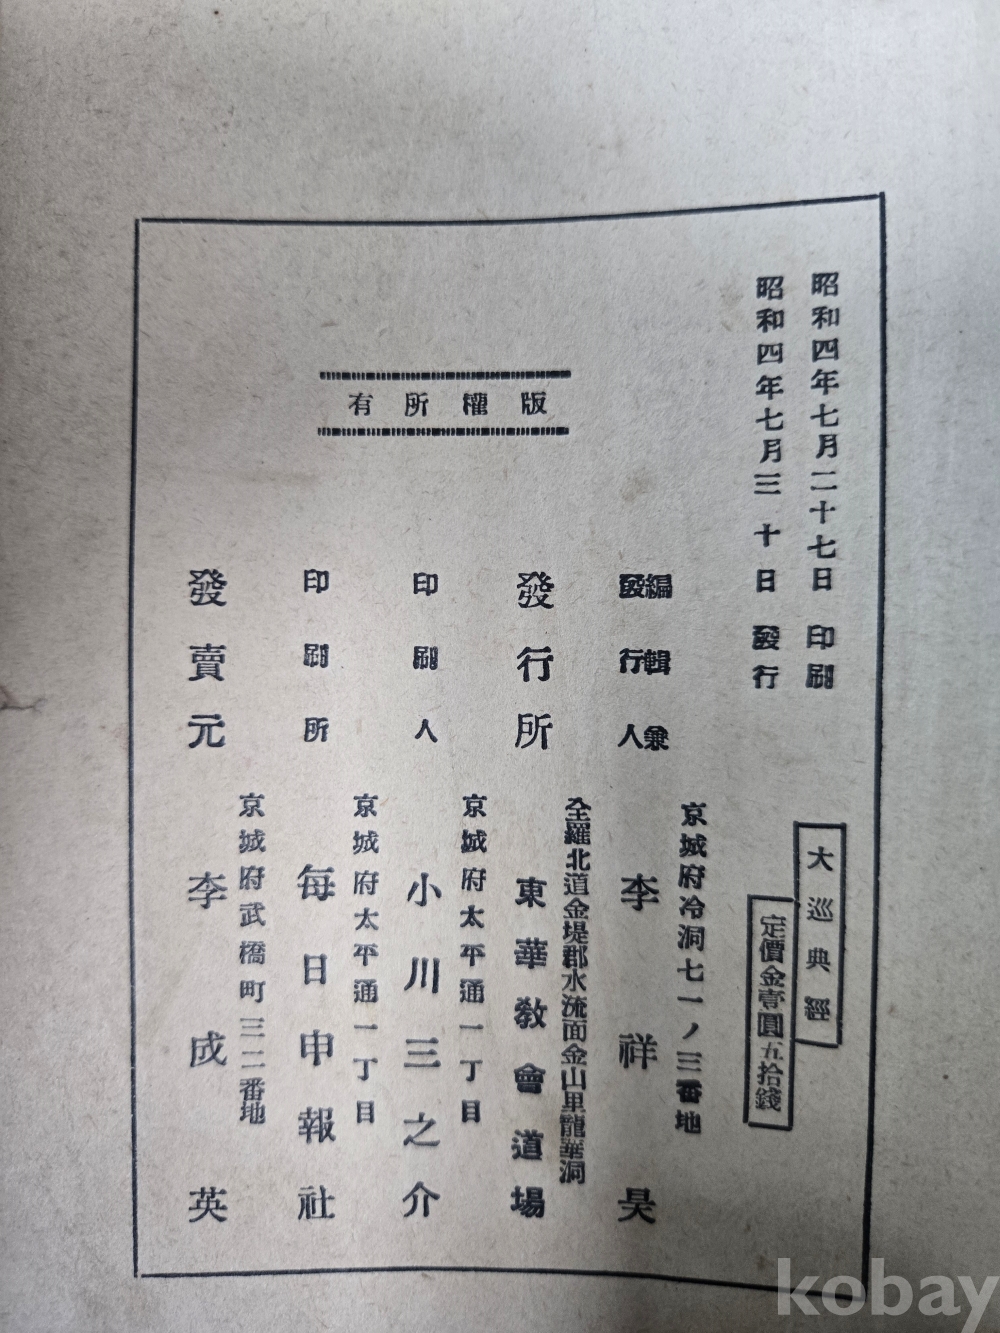 昭和四年七月二十七日印刷
昭和四年七月三十日發行
大巡典經
定價金壹圓五拾錢
版權所有
編輯兼
發行人
京城府冷洞七一ノ三番地
李祥昊
發行所
全羅北道金堤郡水流面金山里龍華洞
東華敎會道場
印刷人
京城府太平通一丁目
小川三之介
印刷所
京城府太平通一丁目
每日申報社
發賣元
京城府武橋町三二番地
李成英
kobay